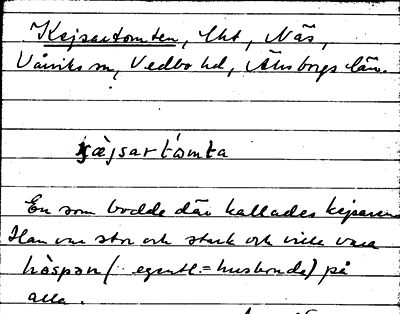 Kejsartomten, lht, Näs,
Vårviks sn, Vedbo hd, Älvsborgs län.
kæ̀jsartòmta
En som bodde där kallades kejsaren
Han var stor och stark och ville vara
hòspən (egentl. = husbonde) på
alla.